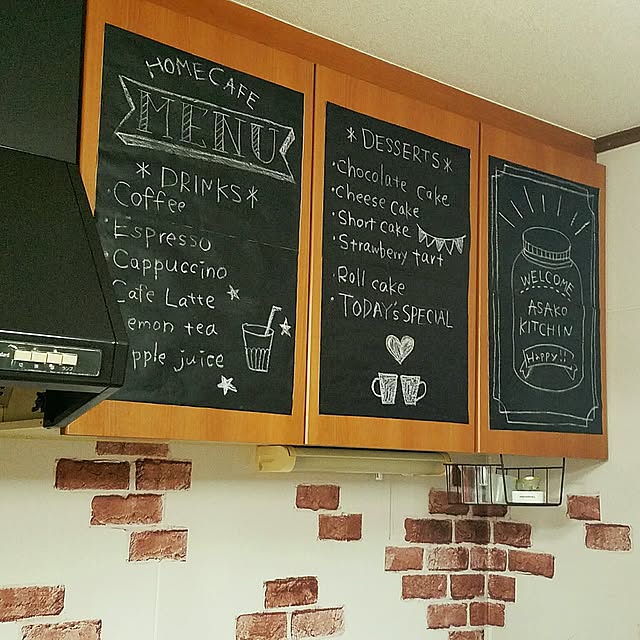 HOMECAFE
MENU
*DRINKS*
・Coffee
・Espresso
・Cappuccino
Cafe Latte
emon tea
pple juice
*DESSERTS*
・Chocolate cake
・Cheese cake
・Short cake
・Strawberry tart
・Roll cake
・TODAY'S SPECIAL
WELCOME
ASAKO
KITCHIN
Happy!!